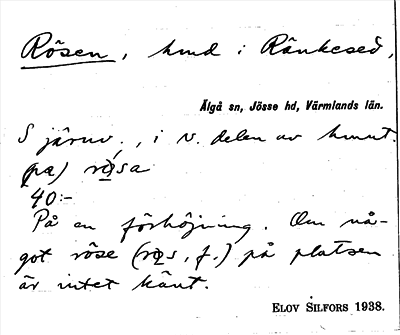 Rösen, hmd i Rånkesed,
Älgå sn, Jösse hd, Värmlands län.
S järnv., i N. delen av hmnt.
(pæ) rǫ́sa
40:-
På en förhöjning. Om nå-
got röse (rǫs, f.) på platsen
är intet känt.
ELOV SILFORS 1938.